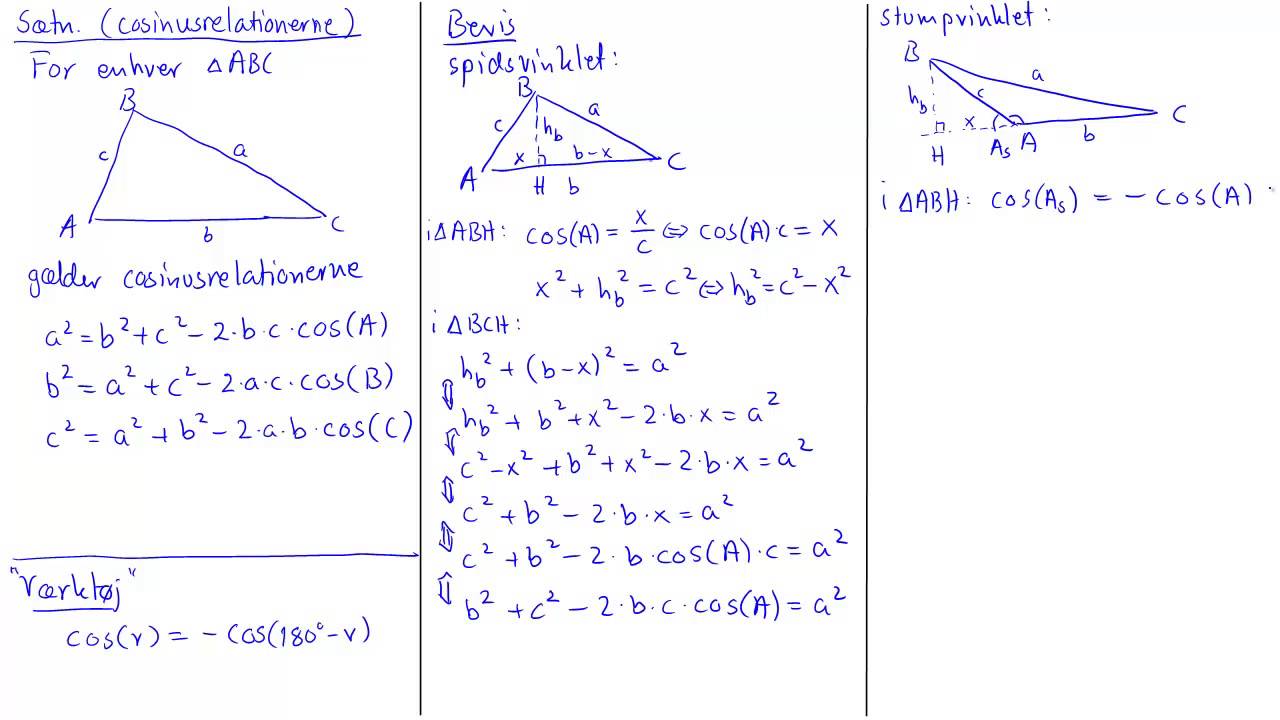 Sætn. (cosinusrelationerne)
For enhver △ABC
B
c
a
A
b
C
gælder cosinusrelationerne
a² = b² + c² − 2·b·c·cos(A)
b² = a² + c² − 2·a·c·cos(B)
c² = a² + b² − 2·a·b·cos(C)
"Værktøj"
cos(v) = −cos(180° − v)
Bevis
spidsvinklet:
B
c
a
h_b
x
b−x
A
H
b
C
i △ABH: cos(A) = x/c ⇔ cos(A)·c = x
x² + h_b² = c² ⇔ h_b² = c² − x²
i △BCH:
h_b² + (b−x)² = a²
⇕ h_b² + b² + x² − 2·b·x = a²
⇕ c² − x² + b² + x² − 2·b·x = a²
⇕ c² + b² − 2·b·x = a²
⇕ c² + b² − 2·b·cos(A)·c = a²
⇕ b² + c² − 2·b·c·cos(A) = a²
stumpvinklet:
B
a
h_b
c
x
C
H
A_s
A
b
i △ABH: cos(A_s) = −cos(A)